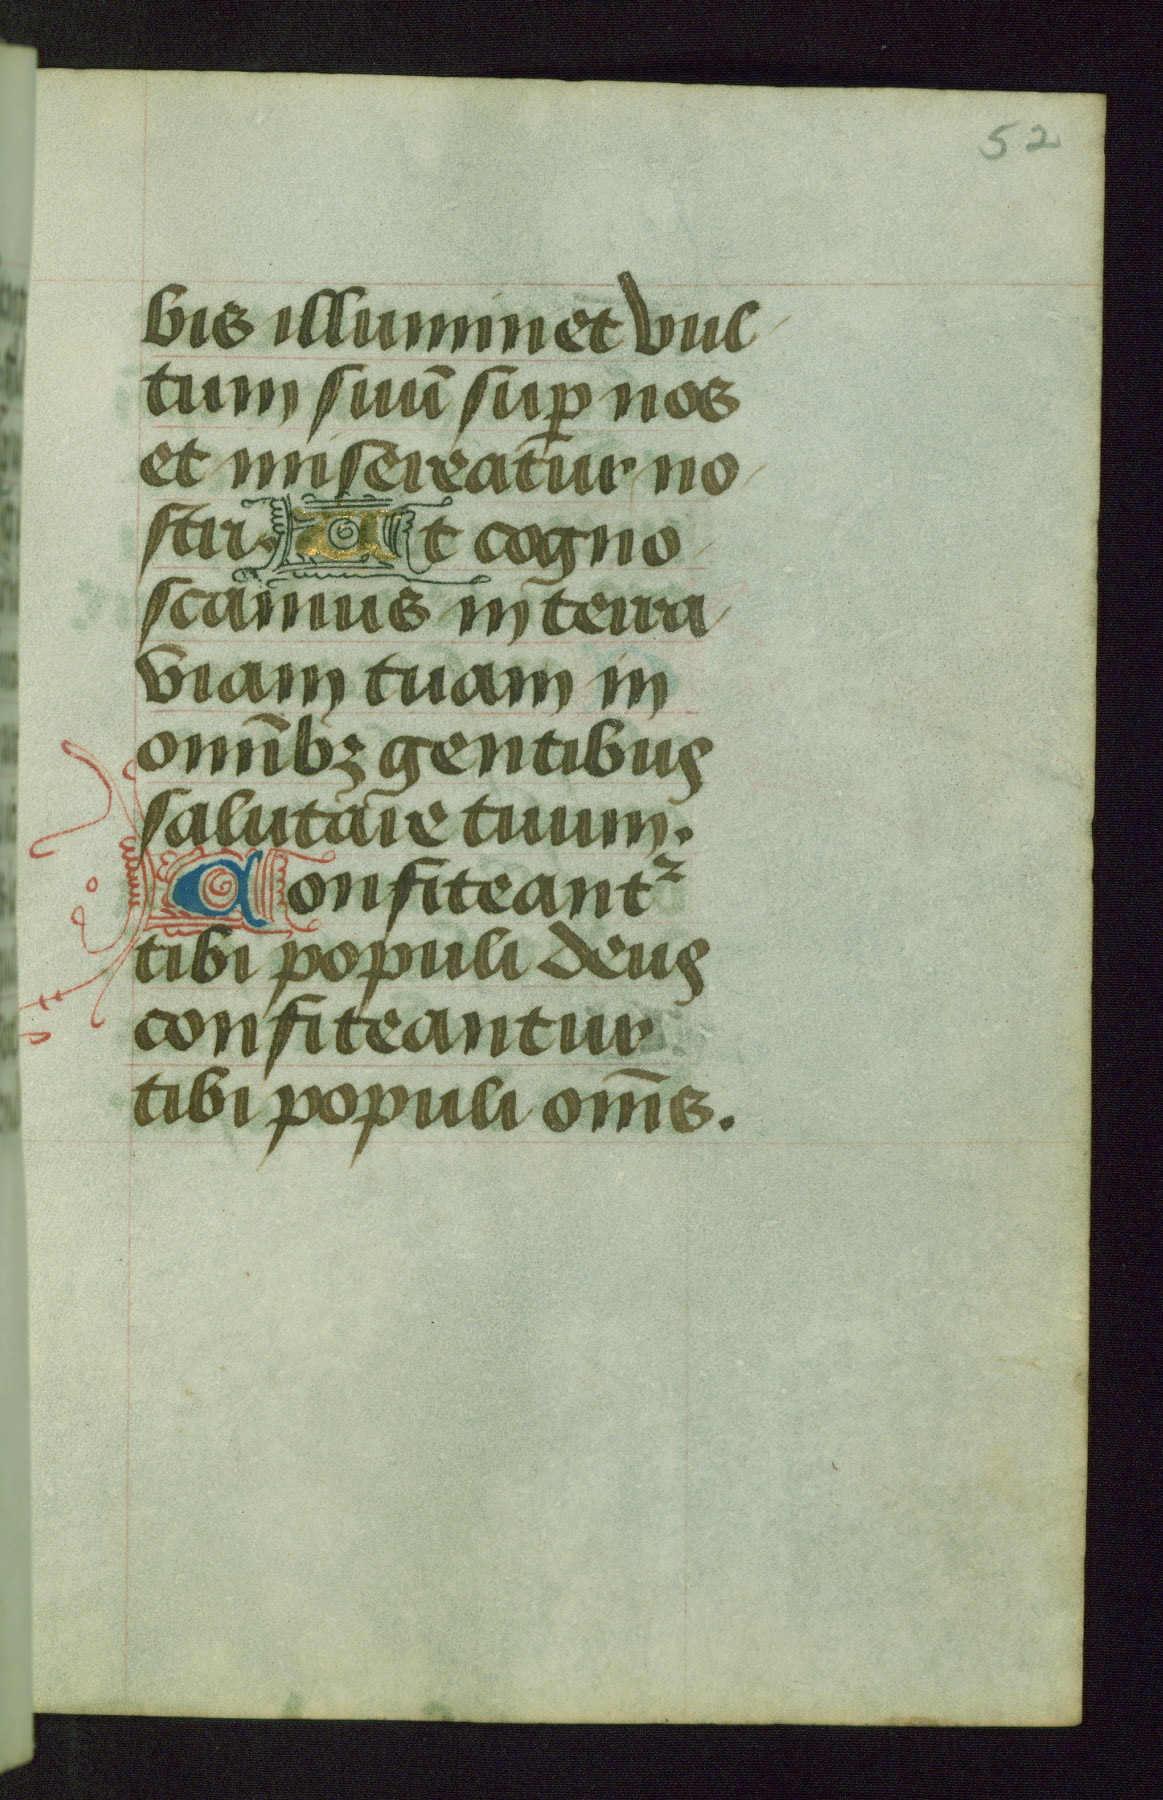 52
bis illuminet vul
tum suū sup̱ nos
et misereatur no
stri. Ut cogno
scamus in terra
viam tuam in
omnībꝫ gentibus
salutare tuum.
Confiteantᷣ
tibi populi deus
confiteantur
tibi populi om̄s.